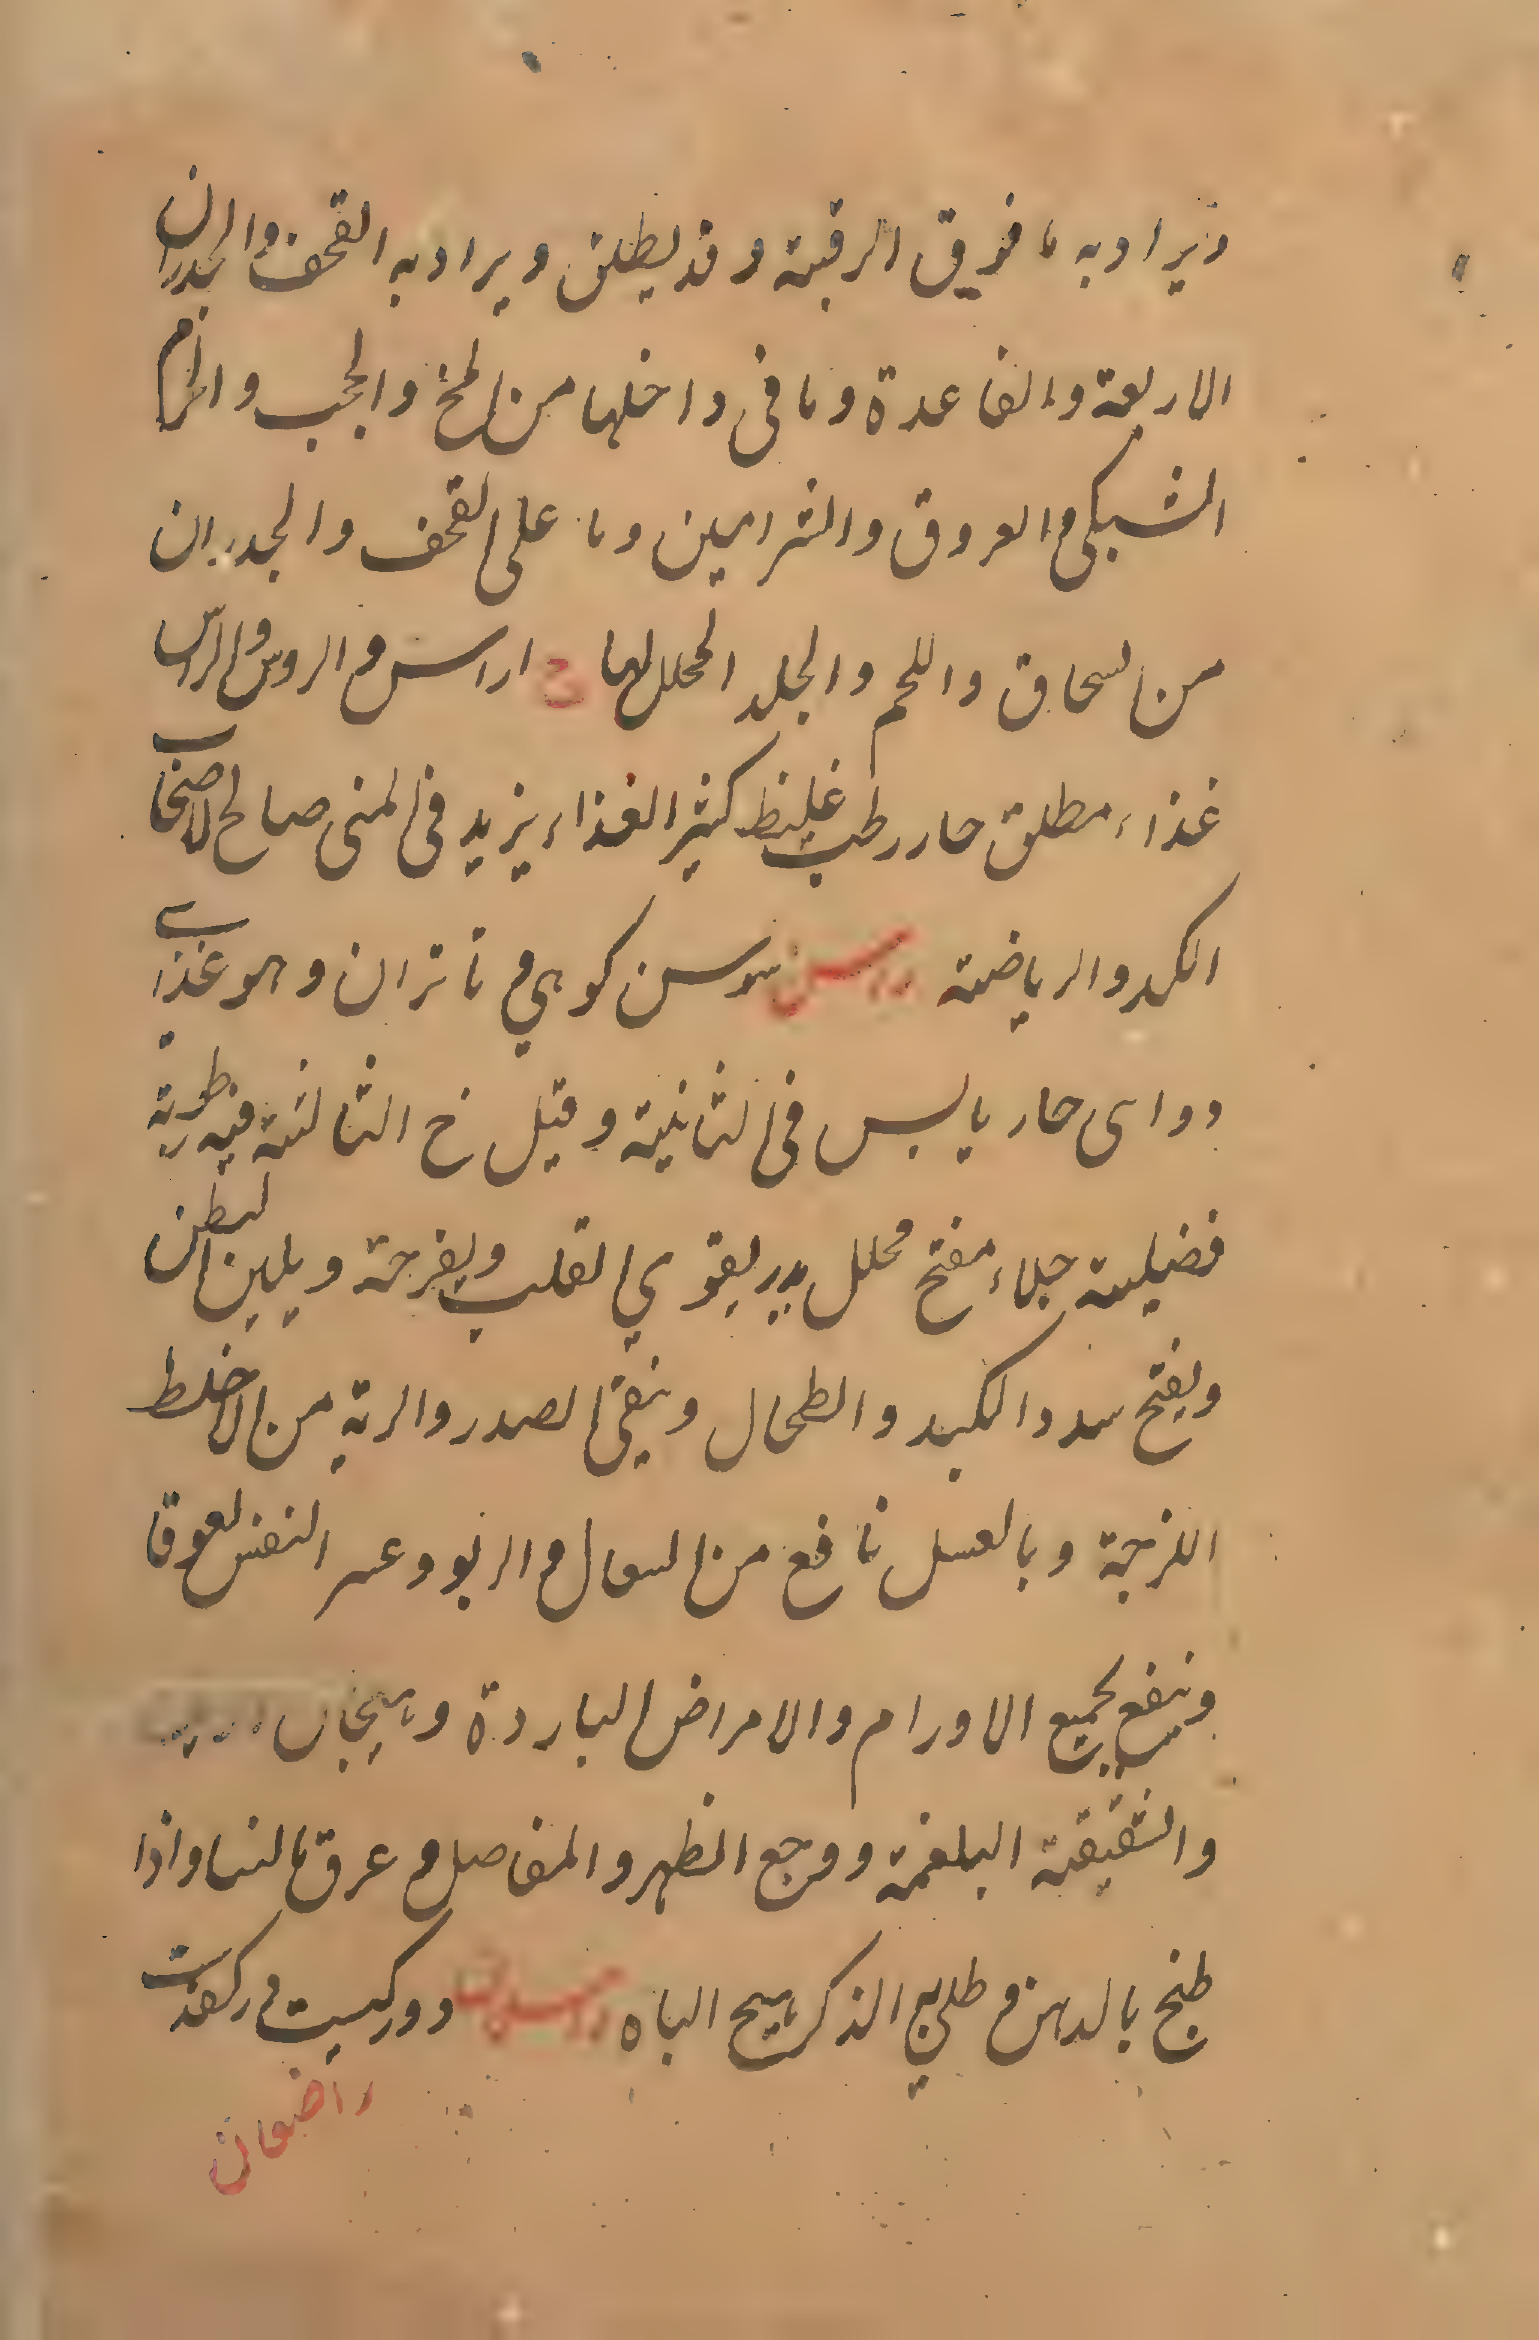 ويراد به ما فوق الرقبة وقد يطلق ويراد به القحف والجدران
الاربعة والقاعدة وما فى داخلها من المخ والحجب والجرم
الشبكى والعروق والشرايين وما على القحف والجدران
من السحاق واللحم والجلد المحلل لها ج اراس و الروس والراس
غذاء مطلق حار رطب غليظ كثير الغذاء يزيد فى المنى صالح لاصحاب
الكد والرياضة راسن سوسن كوهى و تاتران وهو غذاى
دواى حار يابس فى الثانية وقيل فى الثالثة فيه رطوبة
فضلية جلاء مفتح محلل مدر يقوي القلب ويفرحة ويلين البطن
ويفتح سدد الكبد والطحال وينقى الصدر والرية من الاخلط
اللزجة وبالعسل نافع من السعال و الربو وعسر النفس لعوقا
وينفع لجميع الاورام والامراض الباردة وهيجان
والشقيقة البلغمة ووجع الظهر والمفاصل و عرق النسا واذا
طبخ بالدهن و طلى به الذكر يهيج الباه دوركيست و ركفدست
راضعان